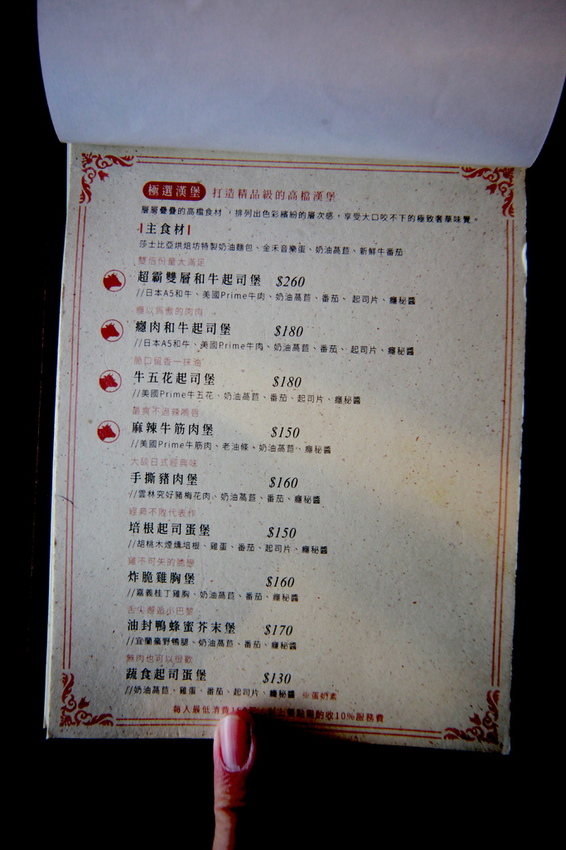 極選漢堡 打造精品級的高檔漢堡
層層疊疊的高檔食材，排列出色彩繽紛的層次感，享受大口咬不下的極致奢華味覺。
主食材
莎士比亞烘焙坊特製奶油麵包、金禾音樂蛋、奶油萵苣、新鮮牛番茄
雙倍份量大滿足
超霸雙層和牛起司堡 $260
//日本A5和牛、美國Prime牛肉、奶油萵苣、番茄、起司片、癮秘醬
癮肉和牛起司堡 $180
//日本A5和牛、美國Prime牛肉、奶油萵苣、番茄、起司片、癮秘醬
牛五花起司堡 $180
//美國Prime牛五花、奶油萵苣、番茄、起司片、癮秘醬
麻辣牛筋肉堡 $150
//美國Prime牛筋肉、老油條、奶油萵苣、癮秘醬
大談日式經典味
手撕豬肉堡 $160
//雲林究好豬梅花肉、奶油萵苣、番茄、癮秘醬
經典不敗代表作
培根起司蛋堡 $150
//胡桃木煙燻培根、雞蛋、番茄、起司片、癮秘醬
雞不可失的脆戀
炸脆雞胸堡 $160
//嘉義桂丁雞胸、奶油萵苣、番茄、癮秘醬
舌尖邂逅小巴黎
油封鴨蜂蜜芥末堡 $170
//宜蘭櫻野鴨腿、奶油萵苣、番茄、癮秘醬
無肉也可以很歡
蔬食起司蛋堡 $130
//奶油萵苣、雞蛋、番茄、起司片、癮秘醬 ※蛋奶素
每人最低消費 酌收10%服務費